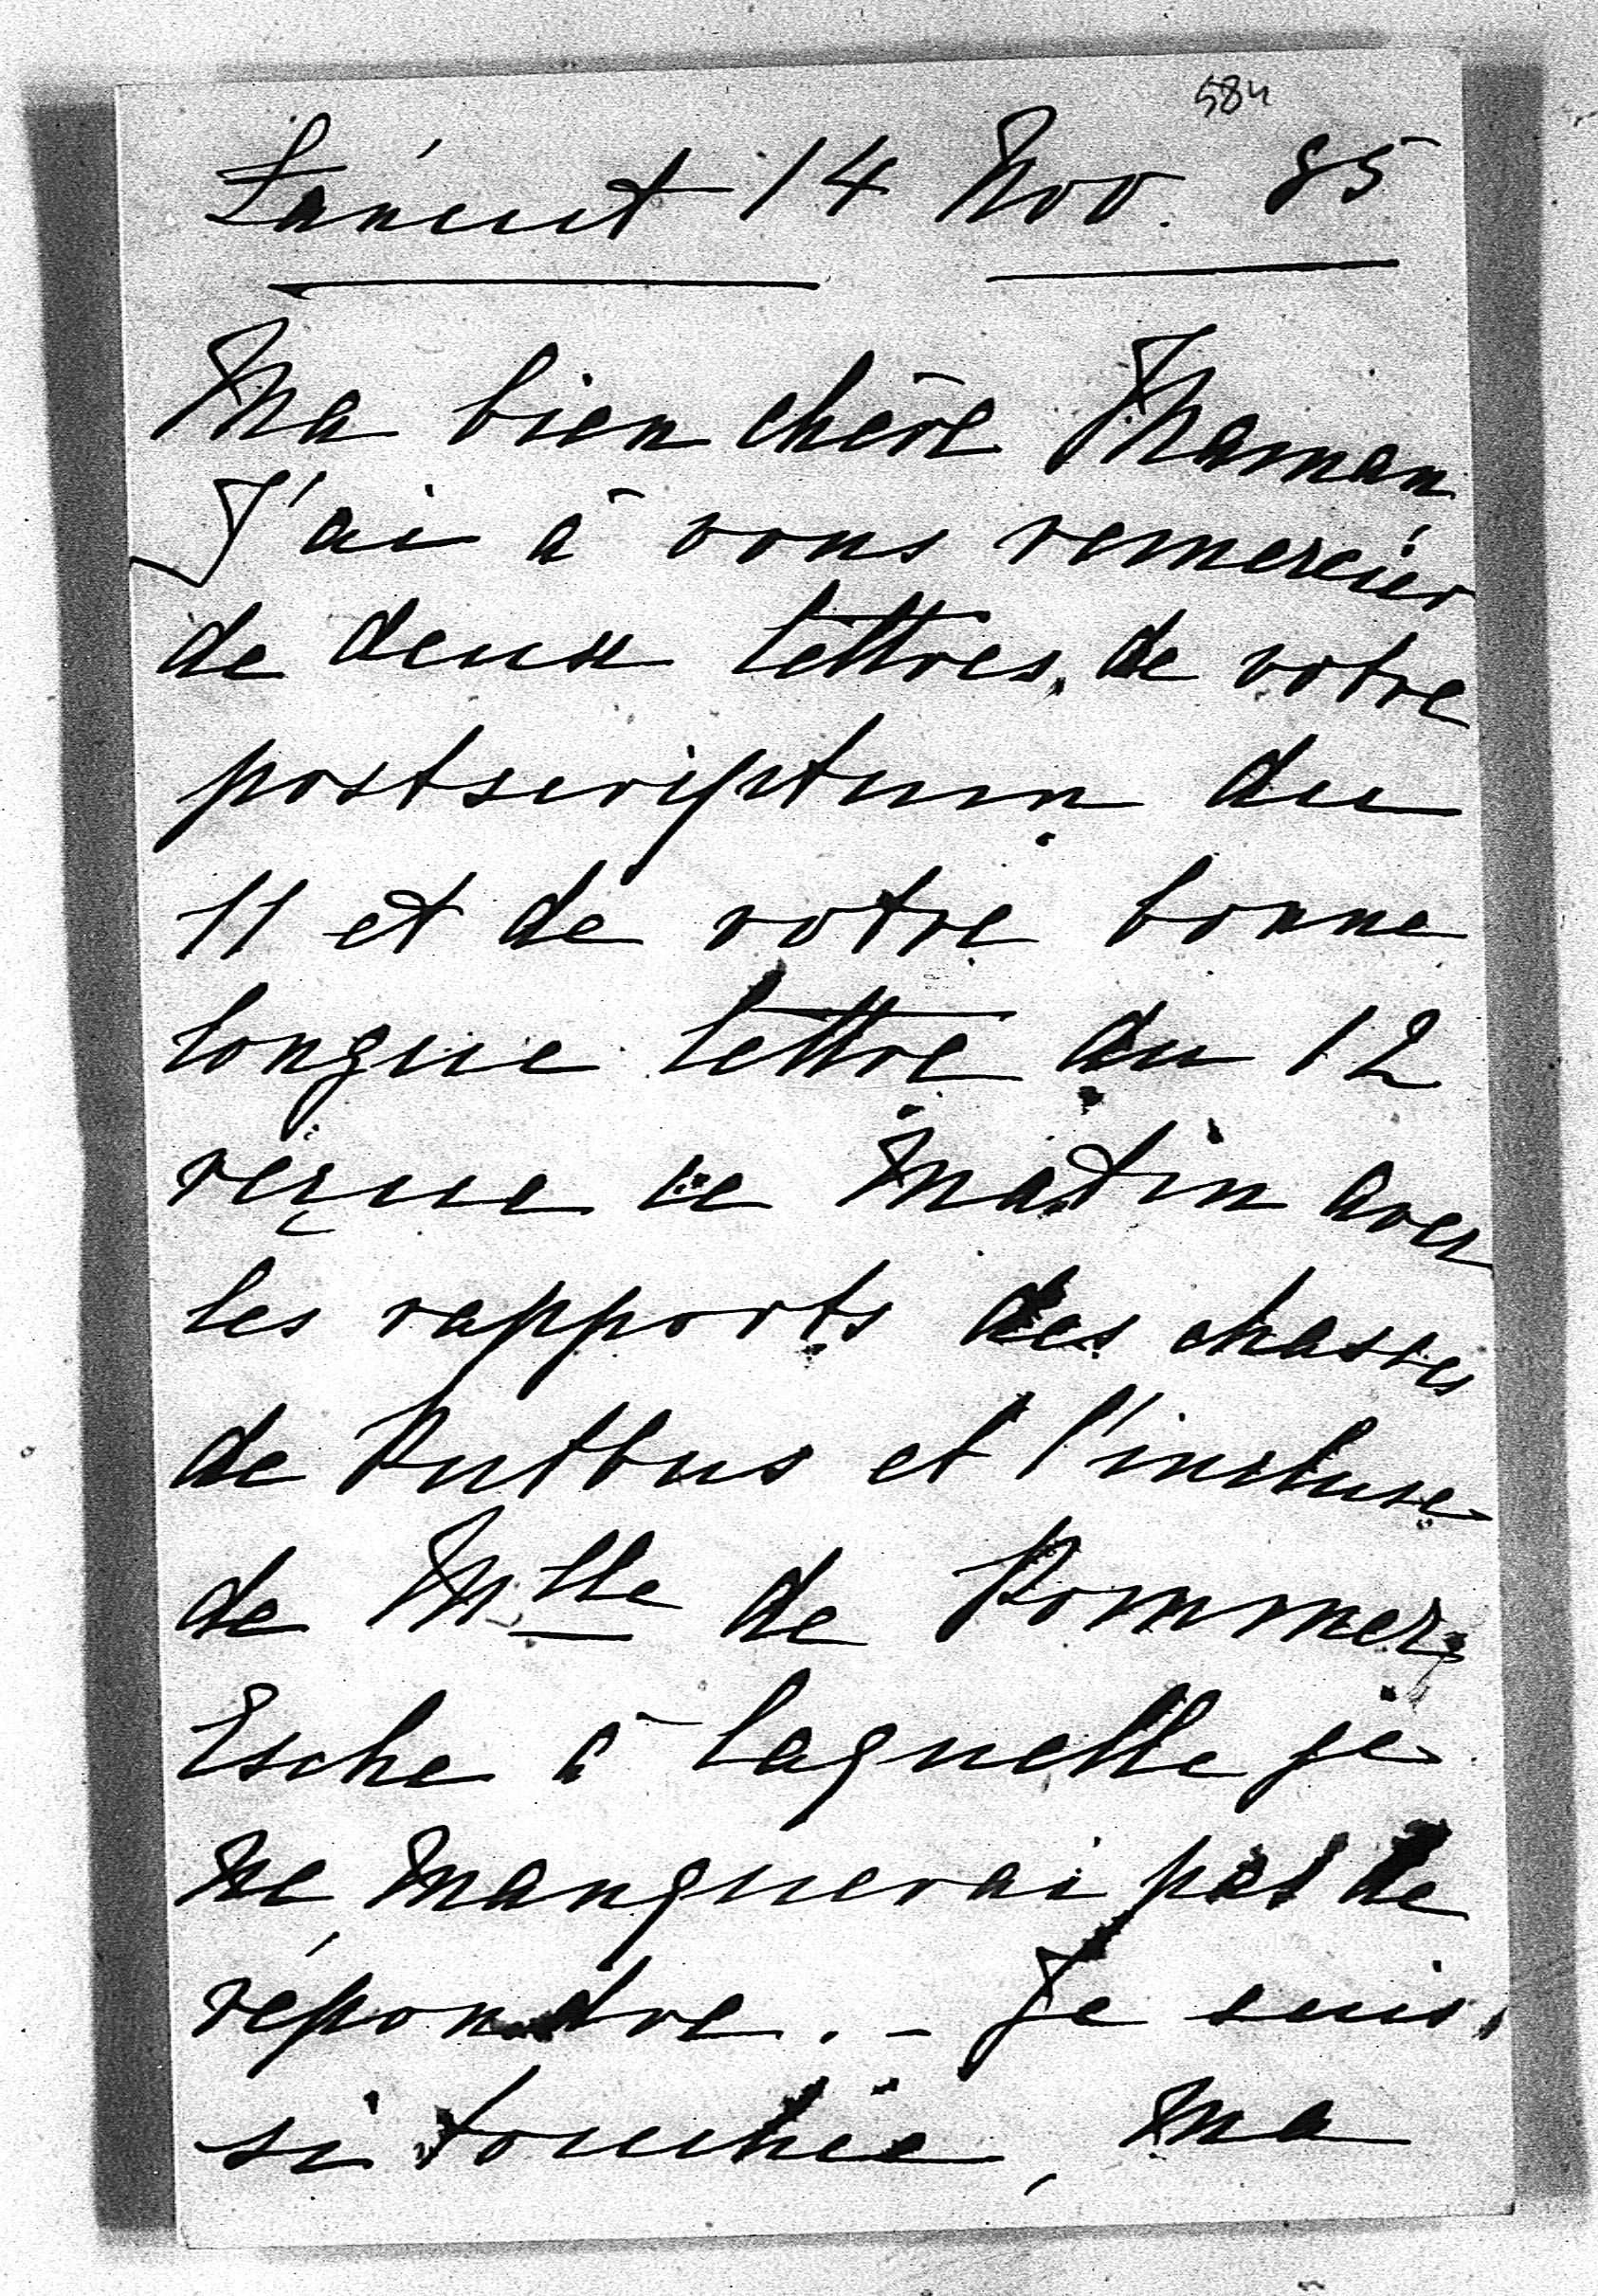 584
Łańcut 14 Nov. 85
Ma bien chère Maman
J'ai à vous remercier
de deux lettres, de votre
postscriptum du
11 et de votre bonne
longue lettre du 12
reçue ce matin avec
les rapports des chasses
de Putbus et l'incluse
de Mlle de Pommer
Esche à laquelle je
ne manquerai pas de
répondre. – Je suis
si touchée, ma